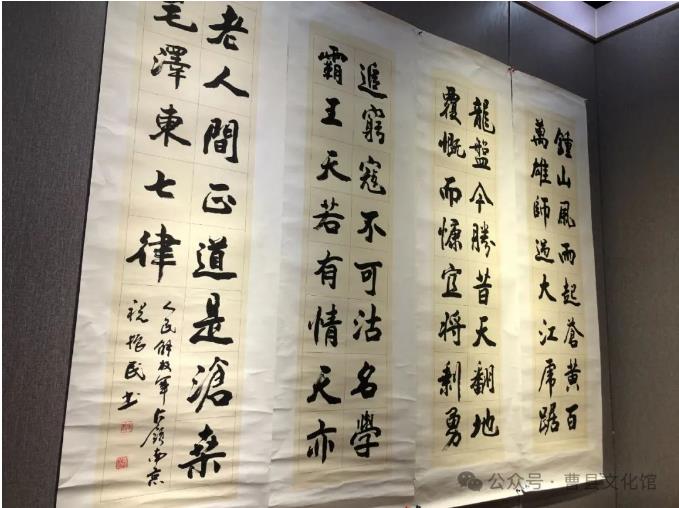 鍾山風雨起蒼黄百
萬雄師過大江虎踞
龍盤今勝昔天翻地
覆慨而慷宜將剩勇
追窮寇不可沽名學
霸王天若有情天亦
老人間正道是滄桑
毛澤東七律
人民解放軍占領南京
祝振民书
公众号·曹县文化馆